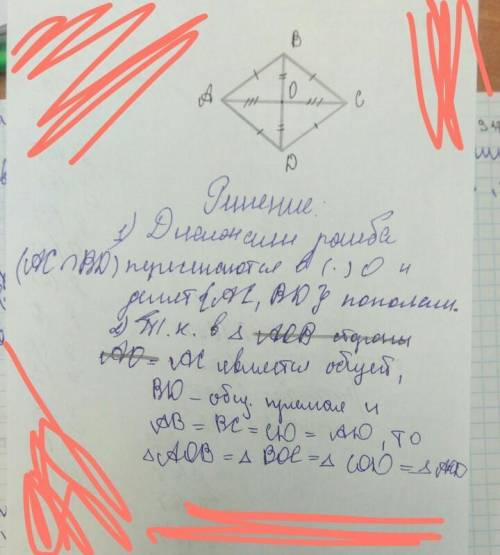 B
A O C
D
Решение:
1) Диагонали ромба
(AC ∩ BD) пересекаются в (·) O и
делят {AC, BD} пополам.
2) Т.к. в △ AOB стороны
AO = AC является общей,
BD – общ. прямая и
AB = BC = CD = AD, то
△AOB = △BOC = △COD = △AOD